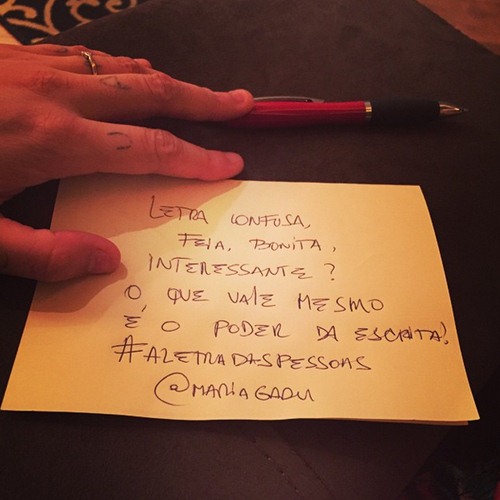 LETRA CONFUSA,
FEIA, BONITA,
INTERESSANTE?
O QUE VALE MESMO
É O PODER DA ESCRITA!
#ALETRADASPESSOAS
@MARIAGADU